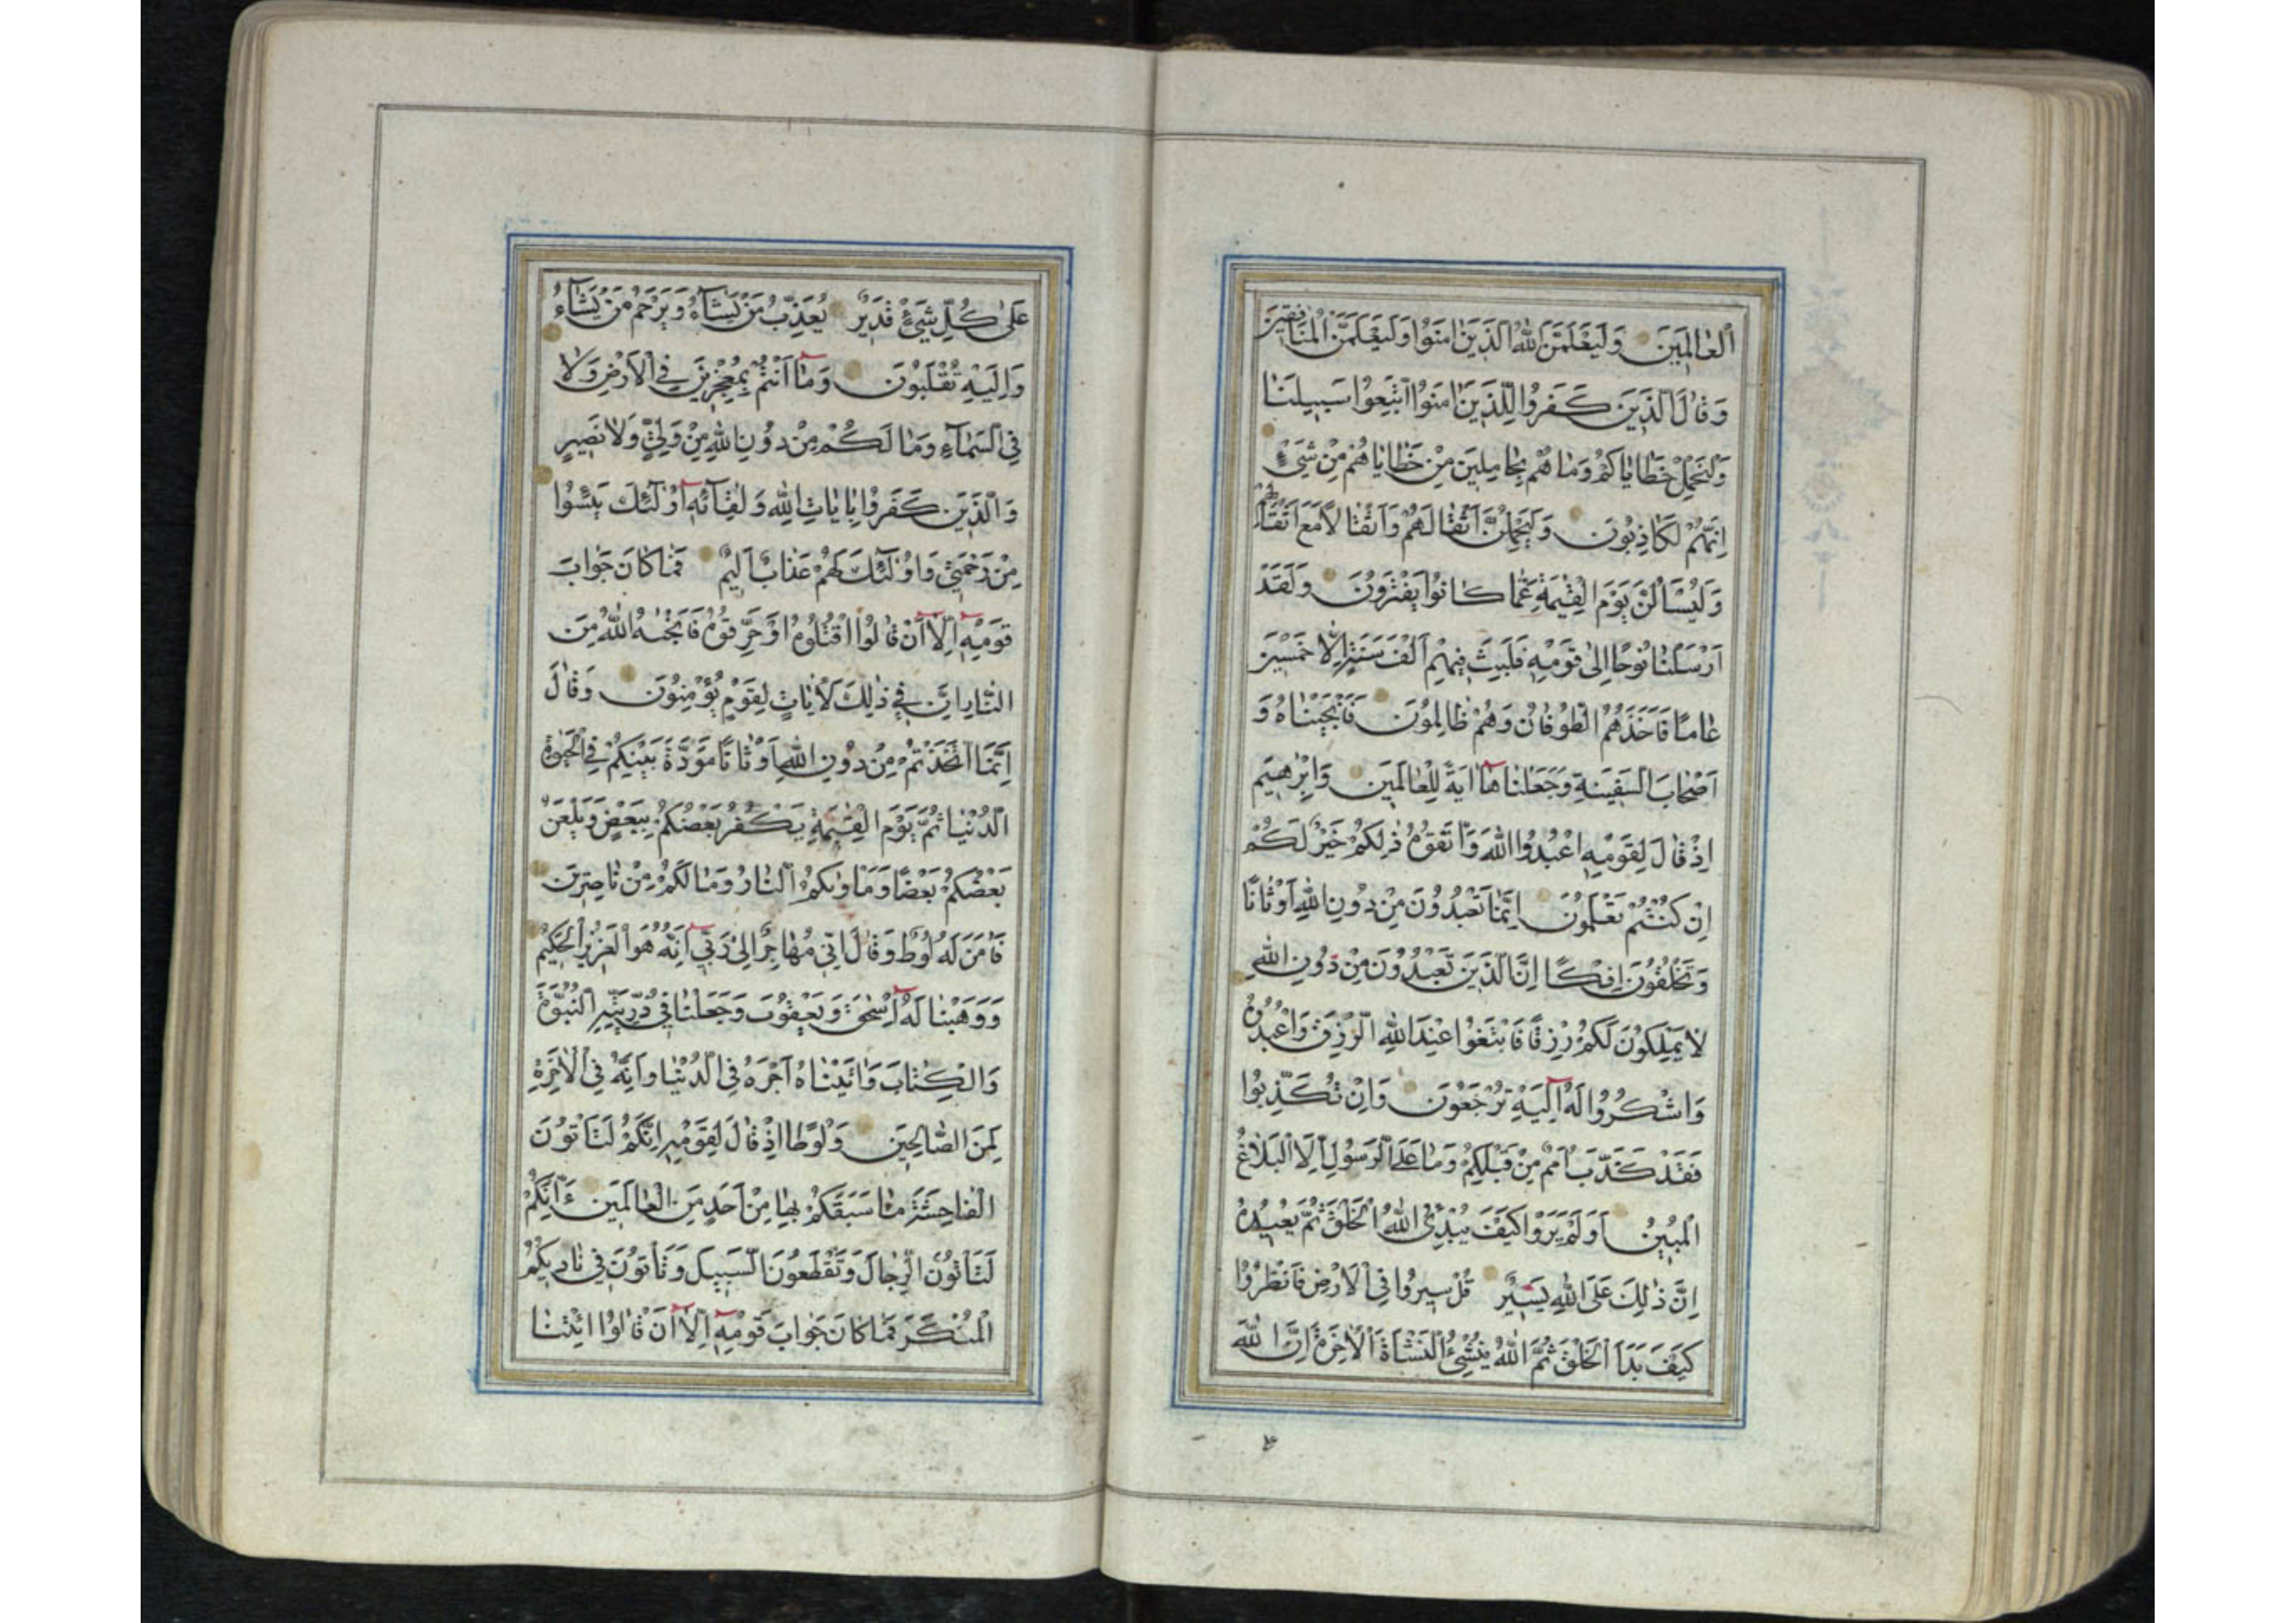 اَلْعٰالَمِينَ وَلَيَعْلَمَنَّ اللّٰهُ الَّذِينَ اٰمَنُوا وَلَيَعْلَمَنَّ الْمُنٰافِقِينَ
وَقٰالَ الَّذِينَ كَفَرُوا لِلَّذِينَ اٰمَنُوا اتَّبِعُوا سَبِيلَنٰا
وَلْنَحْمِلْ خَطٰايٰاكُمْ وَمٰا هُمْ بِحٰامِلِينَ مِنْ خَطٰايٰاهُمْ مِنْ شَيْءٍ
اِنَّهُمْ لَكٰاذِبُونَ وَلَيَحْمِلُنَّ اَثْقٰالَهُمْ وَاَثْقٰالًا مَعَ اَثْقٰالِهِمْ
وَلَيُسْاَلُنَّ يَوْمَ الْقِيٰمَةِ عَمّٰا كٰانُوا يَفْتَرُونَ وَلَقَدْ
اَرْسَلْنٰا نُوحًا اِلٰى قَوْمِهِ فَلَبِثَ فِيهِمْ اَلْفَ سَنَةٍ اِلّٰا خَمْسِينَ
عٰامًا فَاَخَذَهُمُ الطُّوفٰانُ وَهُمْ ظٰالِمُونَ فَاَنْجَيْنٰاهُ وَ
اَصْحٰابَ السَّفِينَةِ وَجَعَلْنٰاهٰا اٰيَةً لِلْعٰالَمِينَ وَاِبْرٰهِيمَ
اِذْ قٰالَ لِقَوْمِهِ اعْبُدُوا اللّٰهَ وَاتَّقُوهُ ذٰلِكُمْ خَيْرٌ لَكُمْ
اِنْ كُنْتُمْ تَعْلَمُونَ اِنَّمٰا تَعْبُدُونَ مِنْ دُونِ اللّٰهِ اَوْثٰانًا
وَتَخْلُقُونَ اِفْكًا اِنَّ الَّذِينَ تَعْبُدُونَ مِنْ دُونِ اللّٰهِ
لٰا يَمْلِكُونَ لَكُمْ رِزْقًا فَابْتَغُوا عِنْدَ اللّٰهِ الرِّزْقَ وَاعْبُدُوهُ
وَاشْكُرُوا لَهُ اِلَيْهِ تُرْجَعُونَ وَاِنْ تُكَذِّبُوا
فَقَدْ كَذَّبَ اُمَمٌ مِنْ قَبْلِكُمْ وَمٰا عَلَى الرَّسُولِ اِلَّا الْبَلٰاغُ
الْمُبِينُ اَوَلَمْ يَرَوْا كَيْفَ يُبْدِئُ اللّٰهُ الْخَلْقَ ثُمَّ يُعِيدُهُ
اِنَّ ذٰلِكَ عَلَى اللّٰهِ يَسِيرٌ قُلْ سِيرُوا فِي الْاَرْضِ فَانْظُرُوا
كَيْفَ بَدَاَ الْخَلْقَ ثُمَّ اللّٰهُ يُنْشِئُ النَّشْاَةَ الْاٰخِرَةَ اِنَّ اللّٰهَ
عَلٰى كُلِّ شَيْءٍ قَدِيرٌ يُعَذِّبُ مَنْ يَشٰاءُ وَيَرْحَمُ مَنْ يَشٰاءُ
وَاِلَيْهِ تُقْلَبُونَ وَمٰا اَنْتُمْ بِمُعْجِزِينَ فِي الْاَرْضِ وَلٰا
فِي السَّمٰاءِ وَمٰا لَكُمْ مِنْ دُونِ اللّٰهِ مِنْ وَلِيٍّ وَلٰا نَصِيرٍ
وَالَّذِينَ كَفَرُوا بِاٰيٰاتِ اللّٰهِ وَلِقٰائِهِ اُولٰئِكَ يَئِسُوا
مِنْ رَحْمَتِي وَاُولٰئِكَ لَهُمْ عَذٰابٌ اَلِيمٌ فَمٰا كٰانَ جَوٰابَ
قَوْمِهِ اِلّٰا اَنْ قٰالُوا اقْتُلُوهُ اَوْ حَرِّقُوهُ فَاَنْجٰىهُ اللّٰهُ مِنَ
النّٰارِ اِنَّ فِي ذٰلِكَ لَاٰيٰاتٍ لِقَوْمٍ يُؤْمِنُونَ وَقٰالَ
اِنَّمَا اتَّخَذْتُمْ مِنْ دُونِ اللّٰهِ اَوْثٰانًا مَوَدَّةَ بَيْنِكُمْ فِي الْحَيٰوةِ
الدُّنْيٰا ثُمَّ يَوْمَ الْقِيٰمَةِ يَكْفُرُ بَعْضُكُمْ بِبَعْضٍ وَيَلْعَنُ
بَعْضُكُمْ بَعْضًا وَمَاْوٰىكُمُ النّٰارُ وَمٰا لَكُمْ مِنْ نٰاصِرِينَ
فَاٰمَنَ لَهُ لُوطٌ وَقٰالَ اِنِّي مُهٰاجِرٌ اِلٰى رَبِّي اِنَّهُ هُوَ الْعَزِيزُ الْحَكِيمُ
وَوَهَبْنٰا لَهُ اِسْحٰقَ وَيَعْقُوبَ وَجَعَلْنٰا فِي ذُرِّيَّتِهِ النُّبُوَّةَ
وَالْكِتٰابَ وَاٰتَيْنٰاهُ اَجْرَهُ فِي الدُّنْيٰا وَاِنَّهُ فِي الْاٰخِرَةِ
لَمِنَ الصّٰالِحِينَ وَلُوطًا اِذْ قٰالَ لِقَوْمِهِ اِنَّكُمْ لَتَاْتُونَ
الْفٰاحِشَةَ مٰا سَبَقَكُمْ بِهٰا مِنْ اَحَدٍ مِنَ الْعٰالَمِينَ ءَاِنَّكُمْ
لَتَاْتُونَ الرِّجٰالَ وَتَقْطَعُونَ السَّبِيلَ وَتَاْتُونَ فِي نٰادِيكُمُ
الْمُنْكَرَ فَمٰا كٰانَ جَوٰابَ قَوْمِهِ اِلّٰا اَنْ قٰالُوا ائْتِنٰا